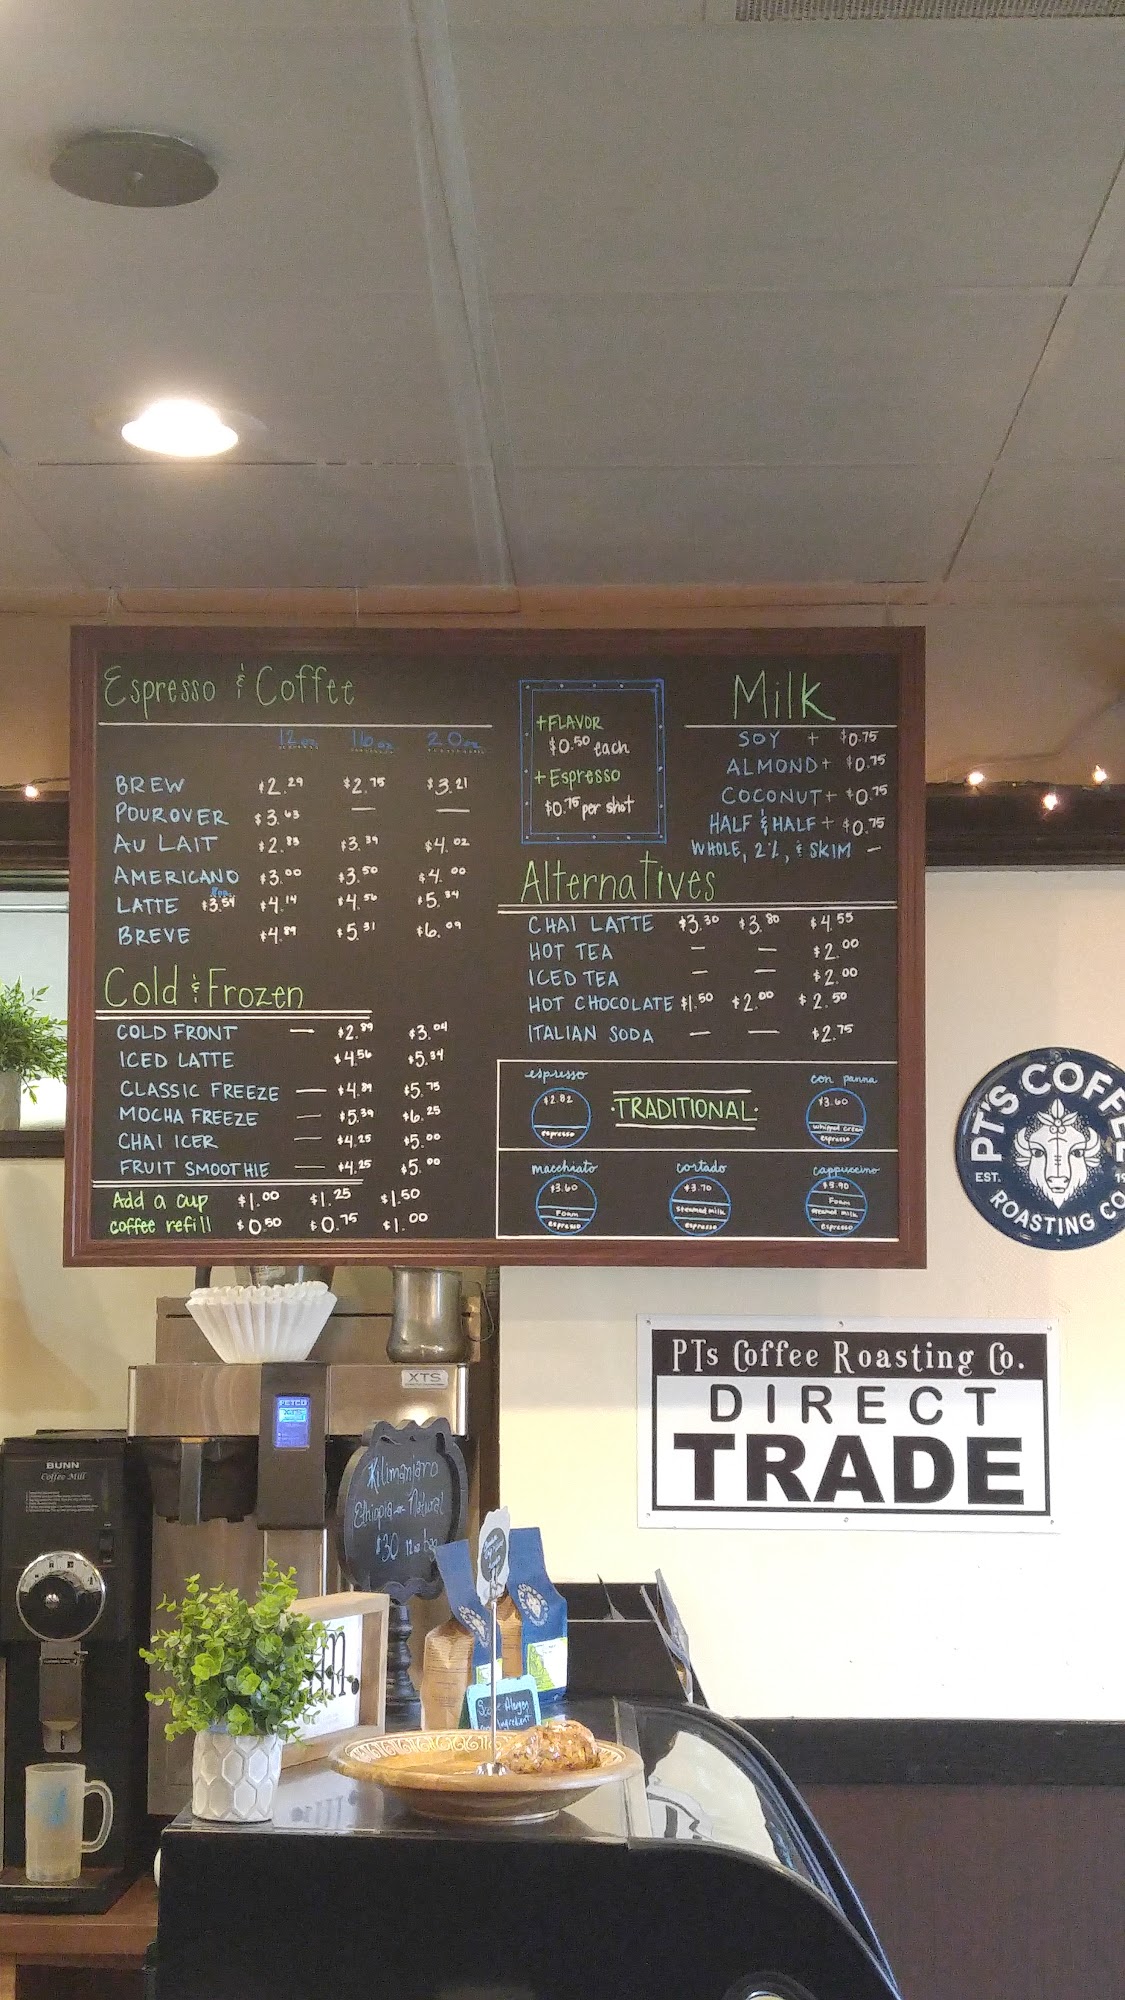 Espresso & Coffee
12 oz. 16 oz. 20 oz.
BREW $2.29 $2.75 $3.21
POUROVER $3.63 — —
AU LAIT $2.83 $3.39 $4.02
AMERICANO $3.00 $3.50 $4.00
LATTE $3.54 $4.14 $4.56 $5.34
BREVE $4.89 $5.31 $6.09
Cold & Frozen
COLD FRONT — $2.89 $3.04
ICED LATTE $4.56 $5.34
CLASSIC FREEZE — $4.89 $5.75
MOCHA FREEZE — $5.39 $6.25
CHAI ICER — $4.25 $5.00
FRUIT SMOOTHIE — $4.25 $5.00
Add a cup $1.00 $1.25 $1.50
coffee refill $0.50 $0.75 $1.00
+FLAVOR
$0.50 each
+Espresso
$0.75 per shot
Milk
SOY + $0.75
ALMOND + $0.75
COCONUT + $0.75
HALF & HALF + $0.75
WHOLE, 2%, & SKIM —
Alternatives
CHAI LATTE $3.30 $3.80 $4.55
HOT TEA — — $2.00
ICED TEA — — $2.00
HOT CHOCOLATE $1.50 $2.00 $2.50
ITALIAN SODA — — $2.75
espresso
$2.82
espresso
·TRADITIONAL·
con panna
$3.60
whipped cream
espresso
macchiato
$3.60
Foam
espresso
cortado
$3.70
steamed milk
espresso
cappuccino
$3.90
Foam
steamed milk
espresso
PT'S COFFEE
EST.
ROASTING CO
PTs Coffee Roasting Co.
DIRECT
TRADE
XTS
FETCO
BUNN
Coffee Mill
Kilimanjaro
Ethiopia Natural
$30 12oz bag